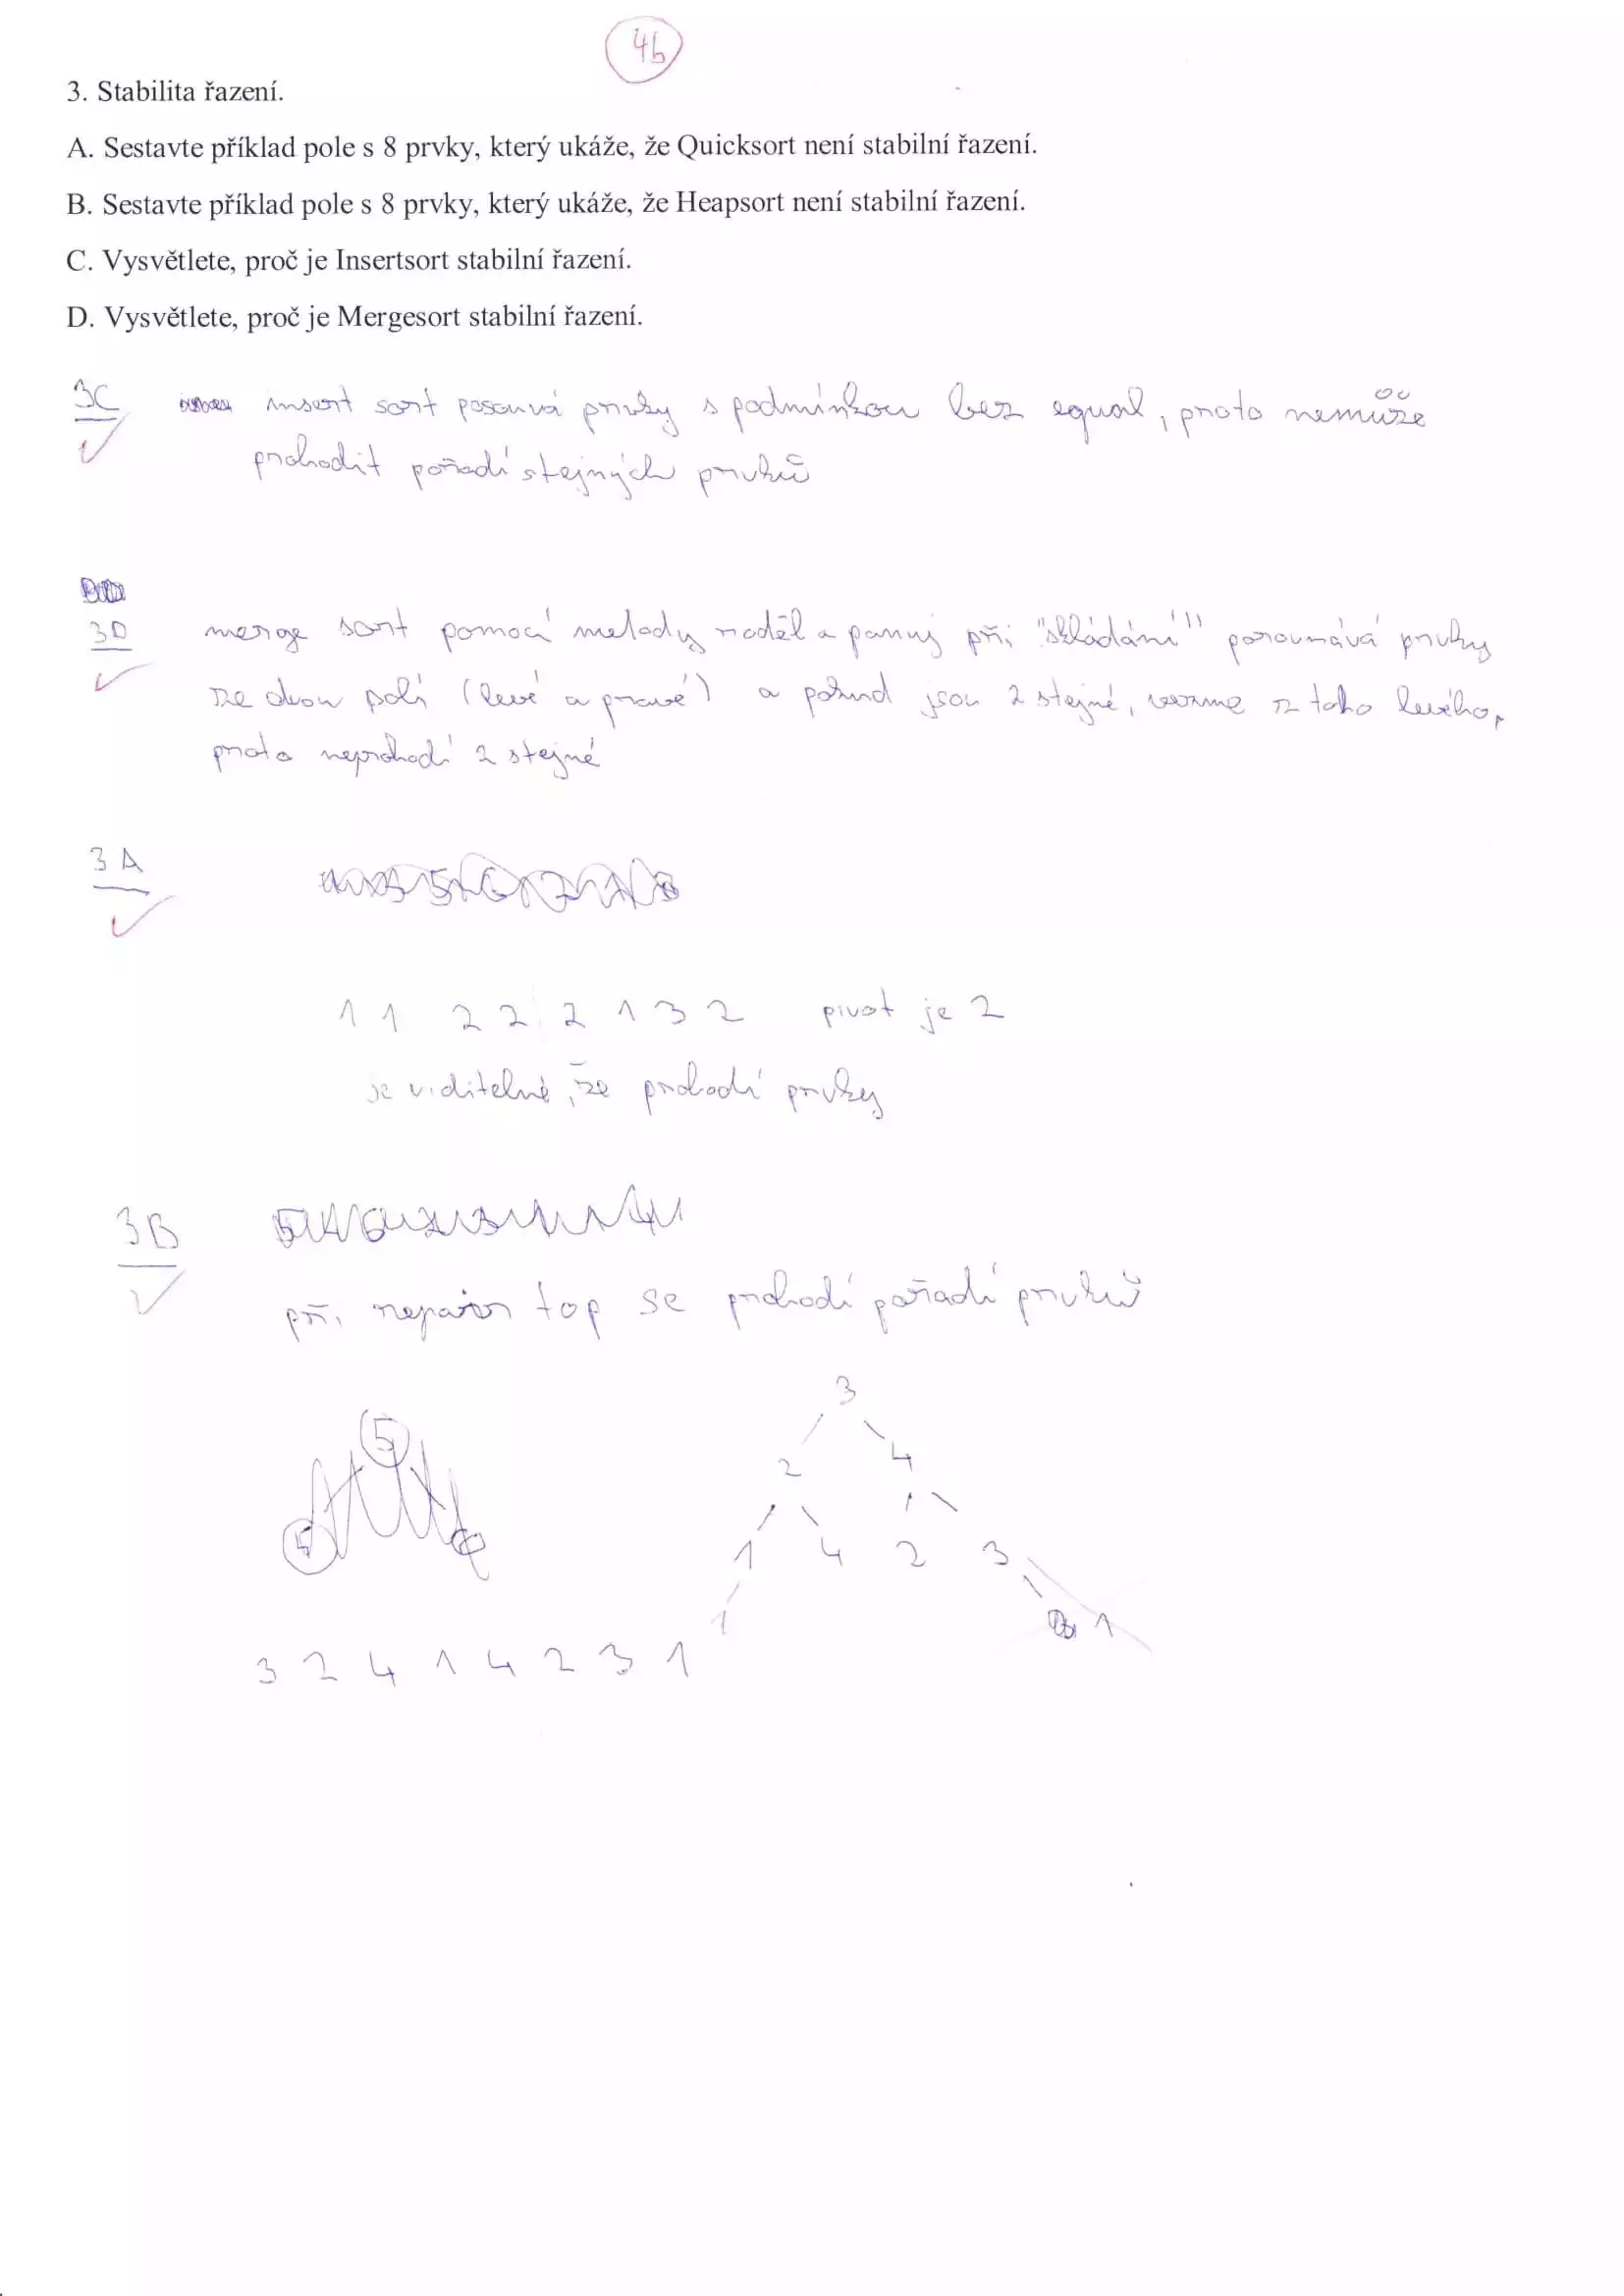 4b
3. Stabilita řazení.
A. Sestavte příklad pole s 8 prvky, který ukáže, že Quicksort není stabilní řazení.
B. Sestavte příklad pole s 8 prvky, který ukáže, že Heapsort není stabilní řazení.
C. Vysvětlete, proč je Insertsort stabilní řazení.
D. Vysvětlete, proč je Mergesort stabilní řazení.
3C insert sort posouvá prvky s podmínkou bez equal, proto nemůže
prohodit pořadí stejných prvků
3D merge sort pomocí metody rozděl a panuj při "skládání" porovnává prvky
ze dvou polí (levé a pravé) a pokud jsou 2 stejné, vezme z toho levého,
proto neprohodí 2 stejné
3A
1 1 2 2 2 1 3 2 pivot je 2
je viditelné, že prohodí prvky
3B
při repair top se prohodí pořadí prvků
3
2 4
1 4 2 3
1 1
3 2 4 1 4 2 3 1